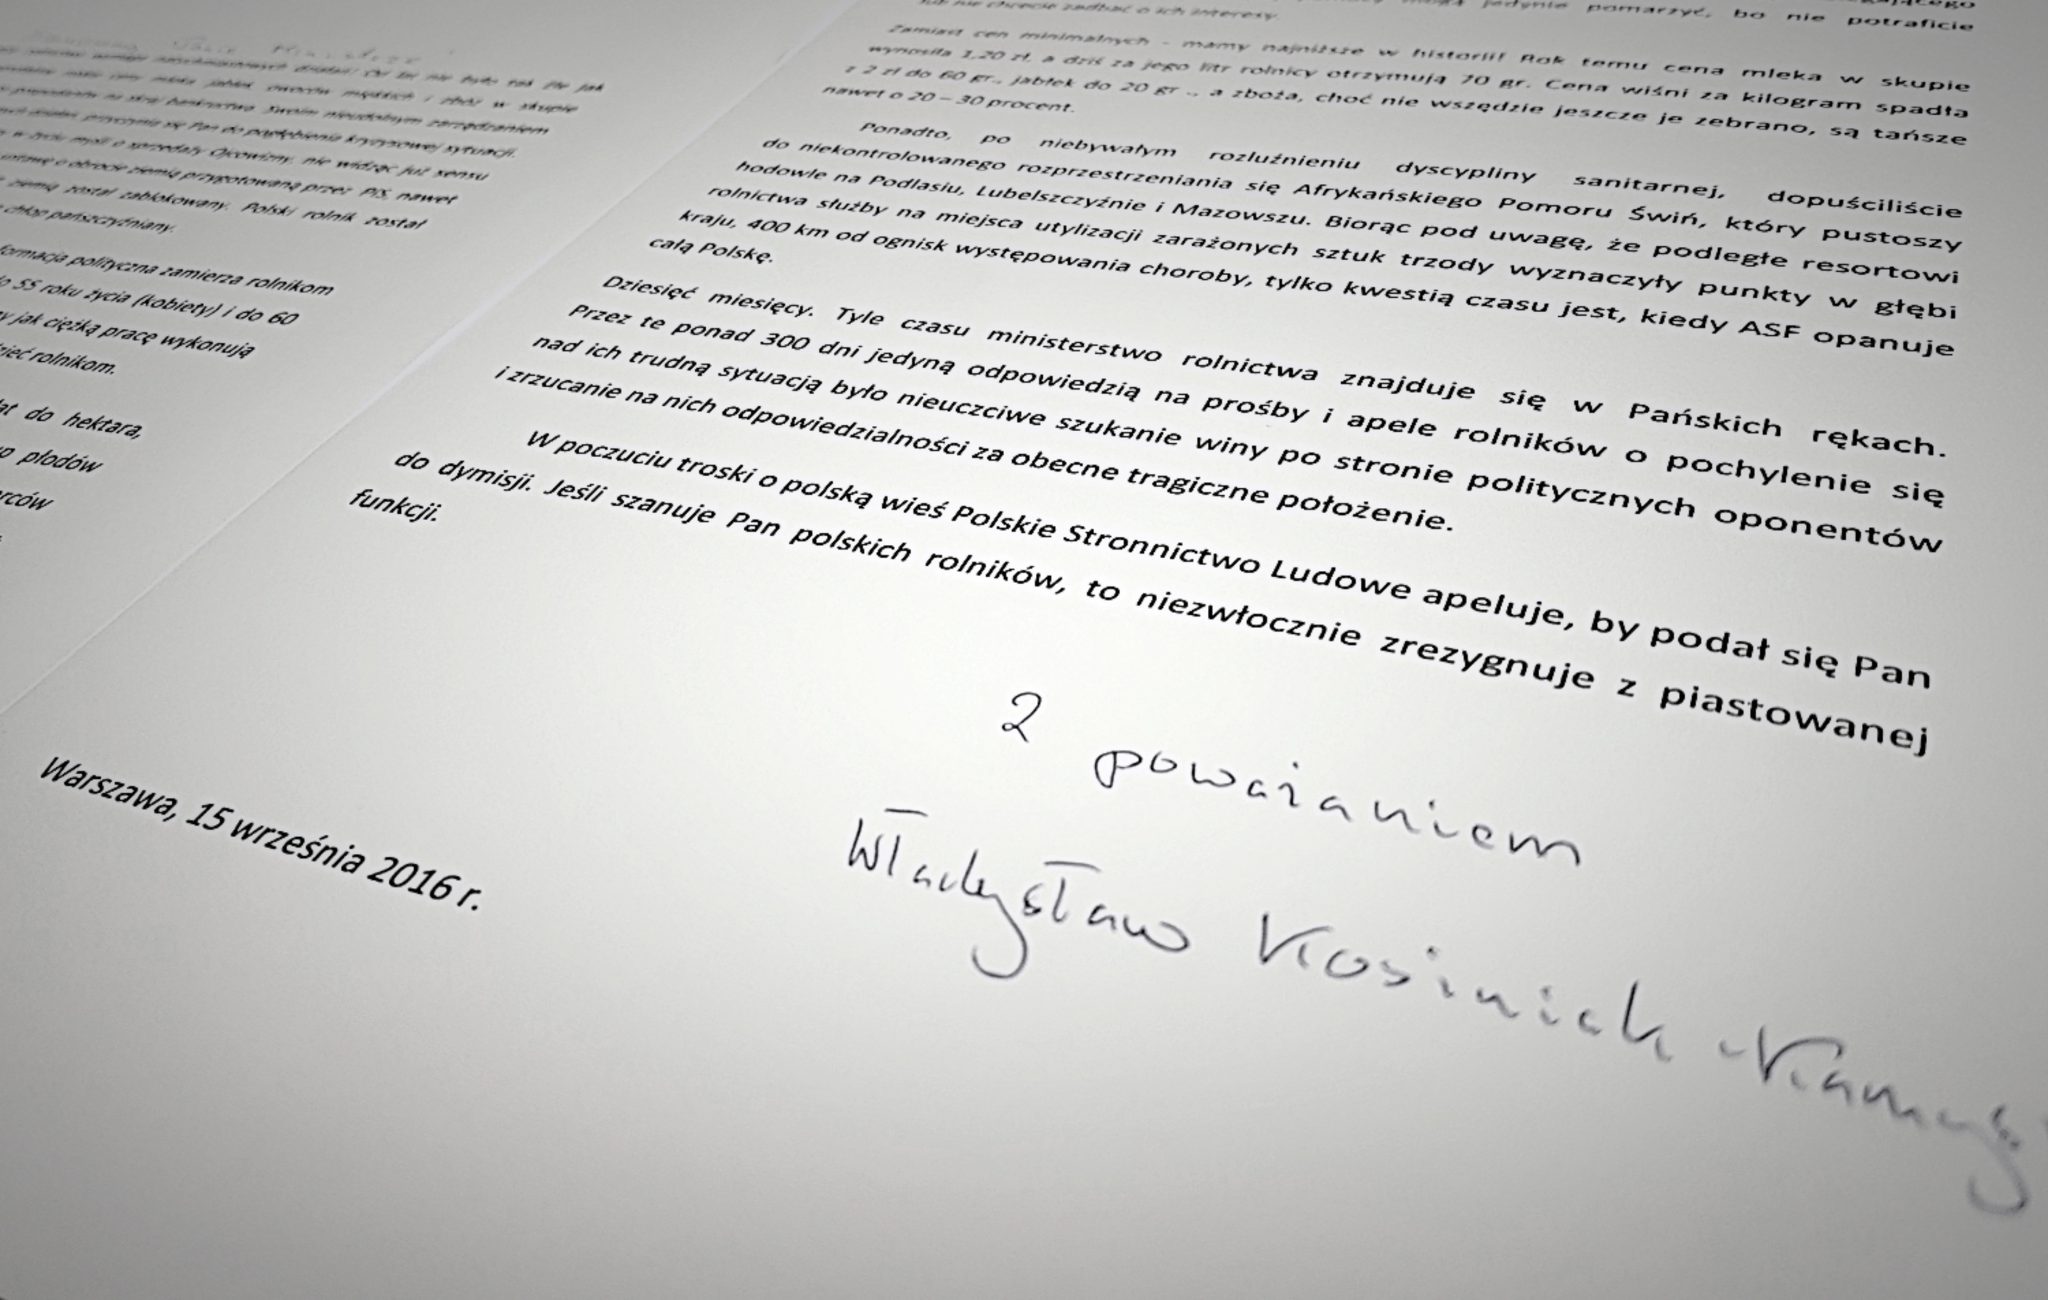 nie było tak źle jak
owoców miękkich i zbóż w skupie
na skraj bankructwa. Swoim nieudolnym zarządzaniem
przyczynia się Pan do pogłębienia kryzysowej sytuacji.
w życiu myśli o sprzedaży Ojcowizny, nie widząc już sensu
ustawę o obrocie ziemią przygotowaną przez PiS, nawet
ziemią został zablokowany. Polski rolnik został
chłop pańszczyźniany.
formacja polityczna zamierza rolnikom
55 roku życia (kobiety) i do 60
jak ciężką pracę wykonują
rolnikom.
do hektara,
płodów
jedynie pomarzyć, bo nie potraficie
lub nie chcecie zadbać o ich interesy.
Zamiast cen minimalnych - mamy najniższe w historii! Rok temu cena mleka w skupie
wynosiła 1,20 zł, a dziś za jego litr rolnicy otrzymują 70 gr. Cena wiśni za kilogram spadła
z 2 zł do 60 gr., jabłek do 20 gr ., a zboża, choć nie wszędzie jeszcze je zebrano, są tańsze
nawet o 20 – 30 procent.
Ponadto, po niebywałym rozluźnieniu dyscypliny sanitarnej, dopuściliście
do niekontrolowanego rozprzestrzeniania się Afrykańskiego Pomoru Świń, który pustoszy
hodowle na Podlasiu, Lubelszczyźnie i Mazowszu. Biorąc pod uwagę, że podległe resortowi
rolnictwa służby na miejsca utylizacji zarażonych sztuk trzody wyznaczyły punkty w głębi
kraju, 400 km od ognisk występowania choroby, tylko kwestią czasu jest, kiedy ASF opanuje
całą Polskę.
Dziesięć miesięcy. Tyle czasu ministerstwo rolnictwa znajduje się w Pańskich rękach.
Przez te ponad 300 dni jedyną odpowiedzią na prośby i apele rolników o pochylenie się
nad ich trudną sytuacją było nieuczciwe szukanie winy po stronie politycznych oponentów
i zrzucanie na nich odpowiedzialności za obecne tragiczne położenie.
W poczuciu troski o polską wieś Polskie Stronnictwo Ludowe apeluje, by podał się Pan
do dymisji. Jeśli szanuje Pan polskich rolników, to niezwłocznie zrezygnuje z piastowanej
funkcji.
Z poważaniem
Władysław Kosiniak-Kamysz
Warszawa, 15 września 2016 r.